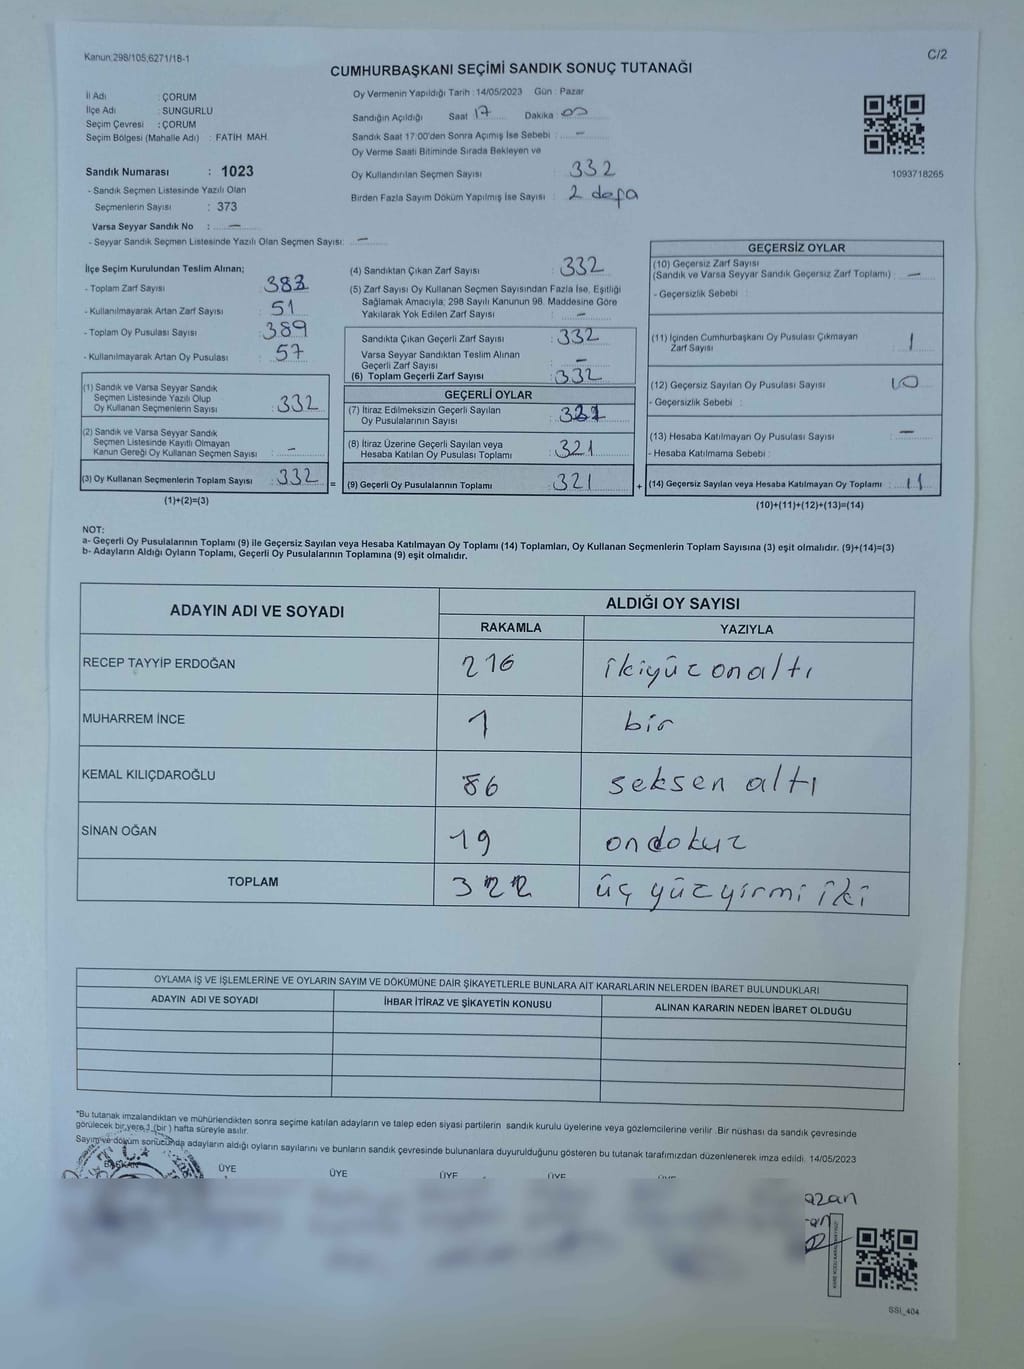 Kanun;298/105,6271/18-1
C/2
CUMHURBAŞKANI SEÇİMİ SANDIK SONUÇ TUTANAĞI
İl Adı : ÇORUM
İlçe Adı : SUNGURLU
Seçim Çevresi : ÇORUM
Seçim Bölgesi (Mahalle Adı) : FATİH MAH.
Oy Vermenin Yapıldığı Tarih : 14/05/2023 Gün : Pazar
Sandığın Açıldığı Saat 17 Dakika : 00
Sandık Saat 17:00'den Sonra Açımış İse Sebebi : -
Oy Verme Saati Bitiminde Sırada Bekleyen ve
Oy Kullandırılan Seçmen Sayısı : 332
Birden Fazla Sayım Döküm Yapılmış İse Sayısı : 2 defa
1093718265
Sandık Numarası : 1023
- Sandık Seçmen Listesinde Yazılı Olan
Seçmenlerin Sayısı : 373
Varsa Seyyar Sandık No : -
- Seyyar Sandık Seçmen Listesinde Yazılı Olan Seçmen Sayısı: -
İlçe Seçim Kurulundan Teslim Alınan;
- Toplam Zarf Sayısı : 383
- Kullanılmayarak Artan Zarf Sayısı : 51
- Toplam Oy Pusulası Sayısı : 389
- Kullanılmayarak Artan Oy Pusulası : 57
(1) Sandık ve Varsa Seyyar Sandık
Seçmen Listesinde Yazılı Olup
Oy Kullanan Seçmenlerin Sayısı : 332
(2) Sandık ve Varsa Seyyar Sandık
Seçmen Listesinde Kayıtlı Olmayan
Kanun Gereği Oy Kullanan Seçmen Sayısı : -
(3) Oy Kullanan Seçmenlerin Toplam Sayısı : 332 =
(1)+(2)=(3)
(4) Sandıktan Çıkan Zarf Sayısı : 332
(5) Zarf Sayısı Oy Kullanan Seçmen Sayısından Fazla İse, Eşitliği
Sağlamak Amacıyla; 298 Sayılı Kanunun 98. Maddesine Göre
Yakılarak Yok Edilen Zarf Sayısı : -
Sandıkta Çıkan Geçerli Zarf Sayısı : 332
Varsa Seyyar Sandıktan Teslim Alınan
Geçerli Zarf Sayısı : -
(6) Toplam Geçerli Zarf Sayısı : 332
GEÇERLİ OYLAR
(7) İtiraz Edilmeksizin Geçerli Sayılan
Oy Pusulalarının Sayısı : 321
(8) İtiraz Üzerine Geçerli Sayılan veya
Hesaba Katılan Oy Pusulası Toplamı : 321
(9) Geçerli Oy Pusulalarının Toplamı : 321 +
GEÇERSİZ OYLAR
(10) Geçersiz Zarf Sayısı
(Sandık ve Varsa Seyyar Sandık Geçersiz Zarf Toplamı) : -
- Geçersizlik Sebebi :
(11) İçinden Cumhurbaşkanı Oy Pusulası Çıkmayan
Zarf Sayısı : 1
(12) Geçersiz Sayılan Oy Pusulası Sayısı : 10
- Geçersizlik Sebebi :
(13) Hesaba Katılmayan Oy Pusulası Sayısı : -
- Hesaba Katılmama Sebebi :
(14) Geçersiz Sayılan veya Hesaba Katılmayan Oy Toplamı : 11
(10)+(11)+(12)+(13)=(14)
NOT:
a- Geçerli Oy Pusulalarının Toplamı (9) ile Geçersiz Sayılan veya Hesaba Katılmayan Oy Toplamı (14) Toplamları, Oy Kullanan Seçmenlerin Toplam Sayısına (3) eşit olmalıdır. (9)+(14)=(3)
b- Adayların Aldığı Oyların Toplamı, Geçerli Oy Pusulalarının Toplamına (9) eşit olmalıdır.
ADAYIN ADI VE SOYADI
ALDIĞI OY SAYISI
RAKAMLA YAZIYLA
RECEP TAYYİP ERDOĞAN 216 ikiyüz onaltı
MUHARREM İNCE 1 bir
KEMAL KILIÇDAROĞLU 86 seksen altı
SİNAN OĞAN 19 ondokuz
TOPLAM 322 üç yüz yirmi iki
OYLAMA İŞ VE İŞLEMLERİNE VE OYLARIN SAYIM VE DÖKÜMÜNE DAİR ŞİKAYETLERLE BUNLARA AİT KARARLARIN NELERDEN İBARET BULUNDUKLARI
ADAYIN ADI VE SOYADI İHBAR İTİRAZ VE ŞİKAYETİN KONUSU ALINAN KARARIN NEDEN İBARET OLDUĞU
*Bu tutanak imzalandıktan ve mühürlendikten sonra seçime katılan adayların ve talep eden siyasi partilerin sandık kurulu üyelerine veya gözlemcilerine verilir .Bir nüshası da sandık çevresinde
görülecek bir yere 1 (bir ) hafta süreyle asılır.
Sayım ve döküm sonucunda adayların aldığı oyların sayılarını ve bunların sandık çevresinde bulunanlara duyurulduğunu gösteren bu tutanak tarafımızdan düzenlenerek imza edildi. 14/05/2023
BAŞKAN ÜYE ÜYE ÜYE ÜYE
SSI_404